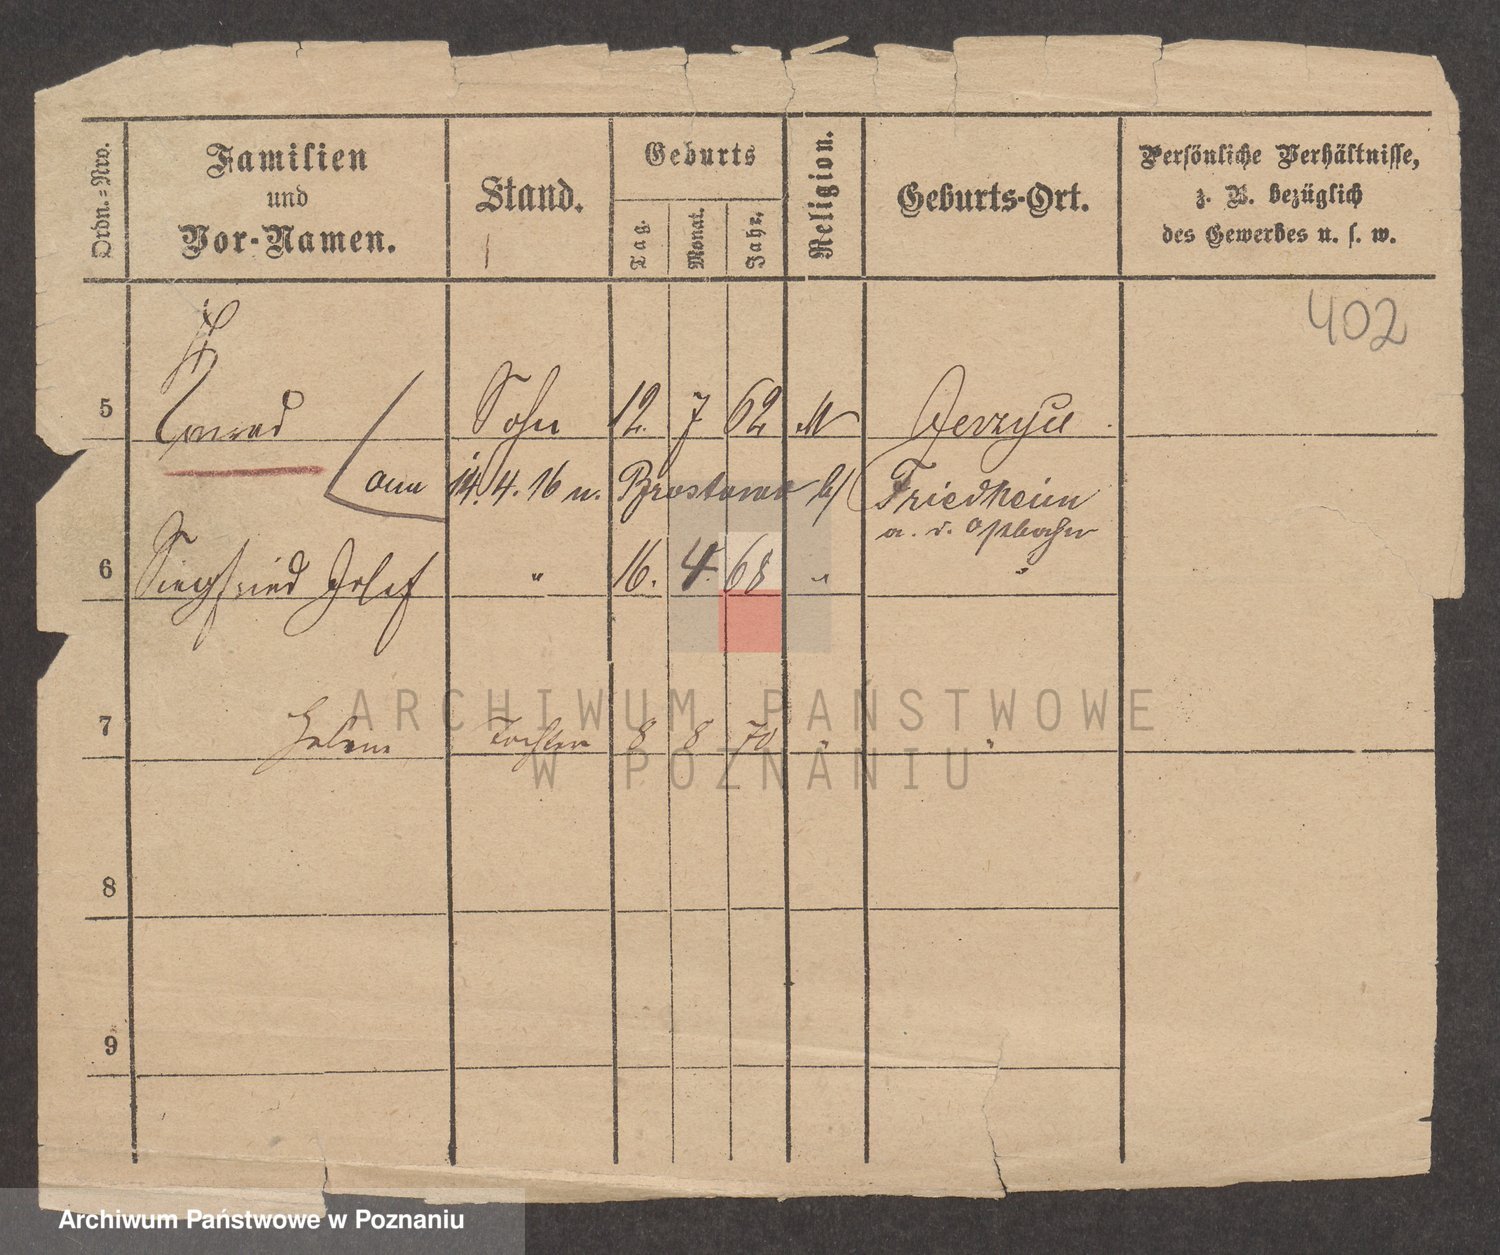 Ordn.-Nro.
Familien
und
Vor-Namen.
Stand.
Geburts
Tag.
Monat.
Jahr.
Religion.
Geburts-Ort.
Persönliche Verhältnisse,
z. B. bezüglich
des Gewerbes u. s. w.
402
5 Konrad Sohn 12. 7 62
14. 4. 16 n. Brostowo b/ Friedheim
a. d. Ostbahn
6 Siegfried Josef " 16. 4. 68 " "
7 Helene Tochter 8 8 70 " "
8
9
ARCHIWUM PAŃSTWOWE
W POZNANIU
Archiwum Państwowe w Poznaniu